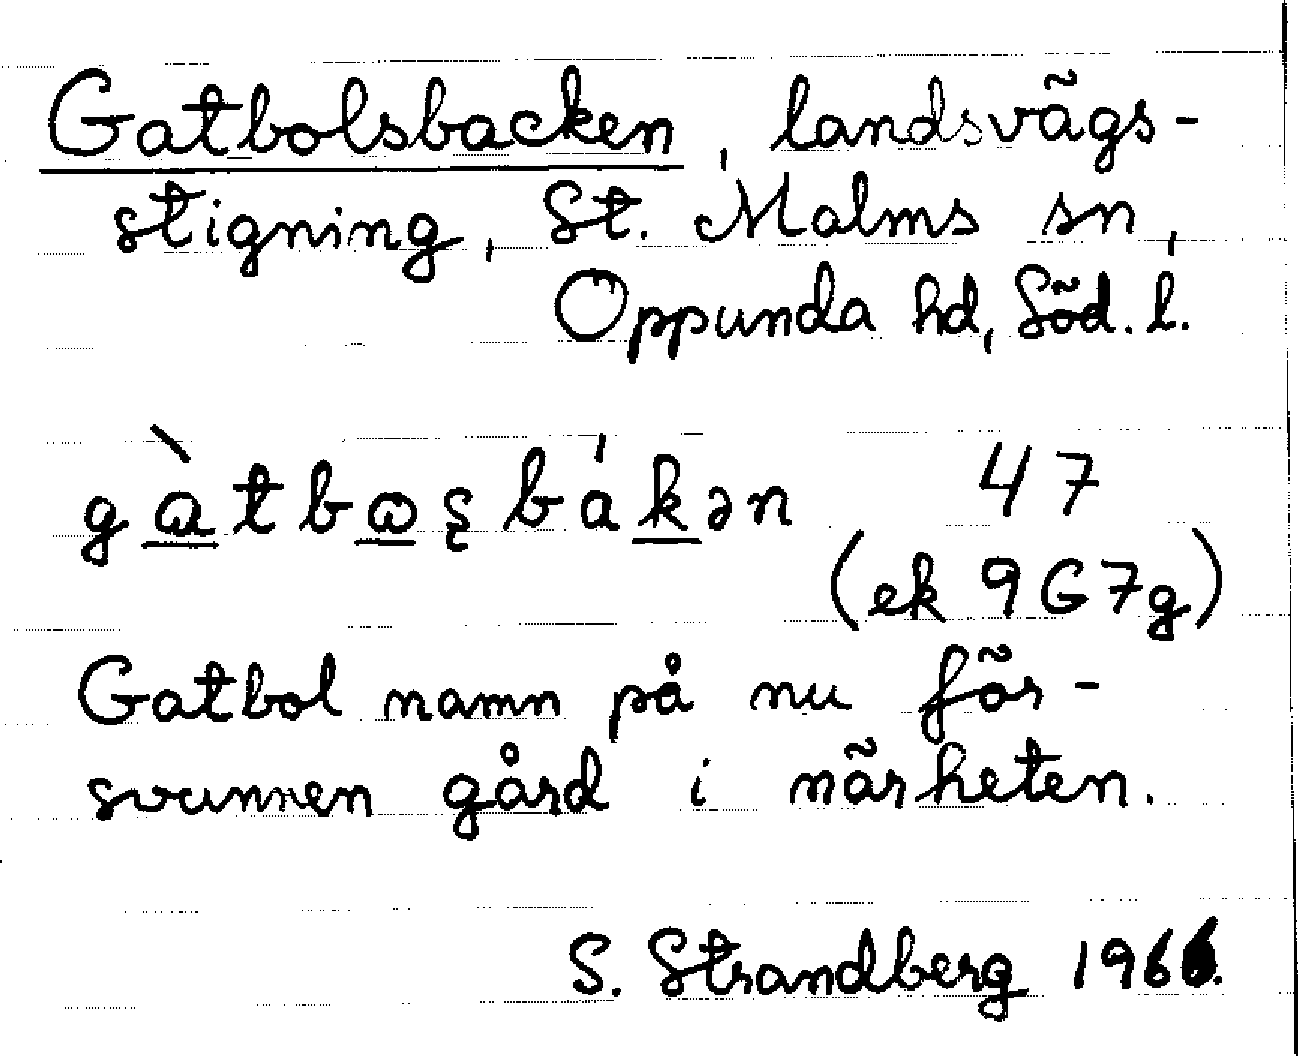 Gatbolsbacken, landsvägs-
stigning, St. Malms sn,
Oppunda hd, Söd. l.
gàtbɷşbákən 47
(ek 9G7g)
Gatbol namn på nu för-
svunnen gård i närheten.
S. Strandberg 1966.